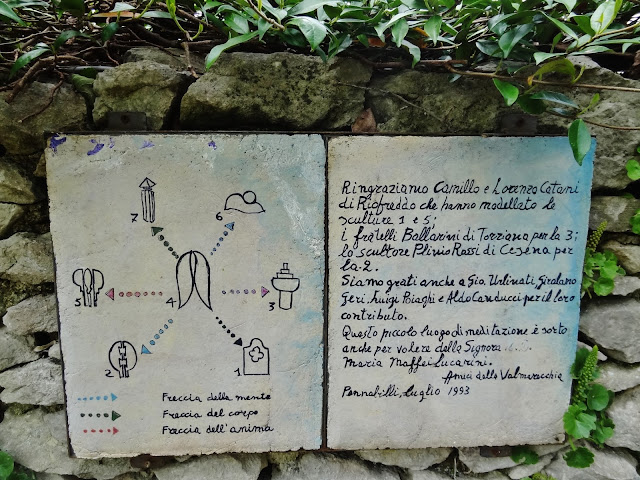 7
6
5
4
3
2
1
Freccia della mente
Freccia del corpo
Freccia dell'anima
Ringraziamo Camillo e Lorenzo Catani
di Riofreddo che hanno modellato le
sculture 1 e 5;
i fratelli Ballarini di Torriana per la 3;
lo scultore Plinio Rossi di Cesena per
la 2.
Siamo grati anche a Gio. Urbinati, Girolamo
Geri, Luigi Poiaghi e Aldo Carducci per il loro
contributo.
Questo piccolo luogo di meditazione è sorto
anche per volere della Signora
Maria Maffei Lucarini.
Amici della Valmarecchia
Pennabilli, Luglio 1993